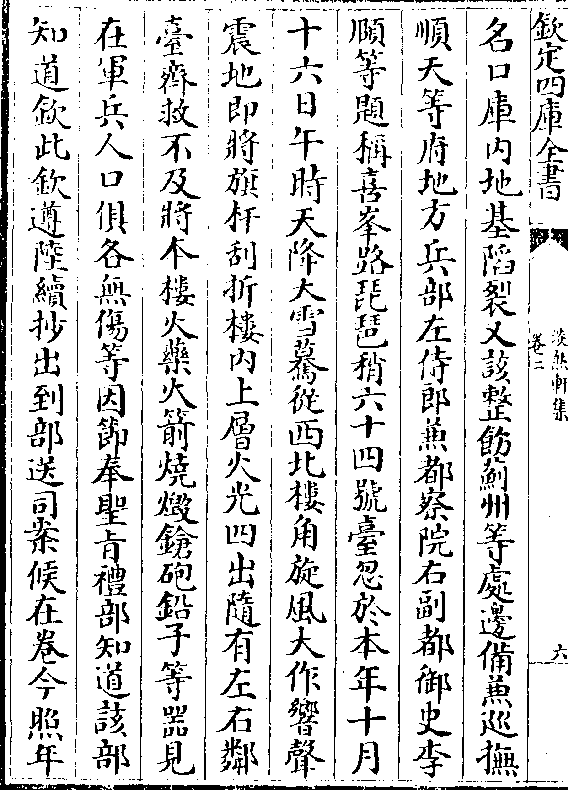 欽定四庫全書
淡然軒集
卷二
六
名口庫内地基陷裂又該整飭薊州等處邊備兼巡撫
順天等府地方兵部左侍郎兼都察院右副都御史李
頤等題稱喜峯路琵琶稍六十四號臺忽於本年十月
十六日午時天降大雪驀從西北樓角旋風大作響聲
震地即將旗杆刮折樓内上層火光四出隨有左右鄰
臺齊救不及將本樓火藥火箭燒燬鎗砲鉛子等器見
在軍兵人口俱各無傷等因節奉聖旨禮部知道該部
知道欽此欽遵陸續抄出到部送司案候在卷今照年